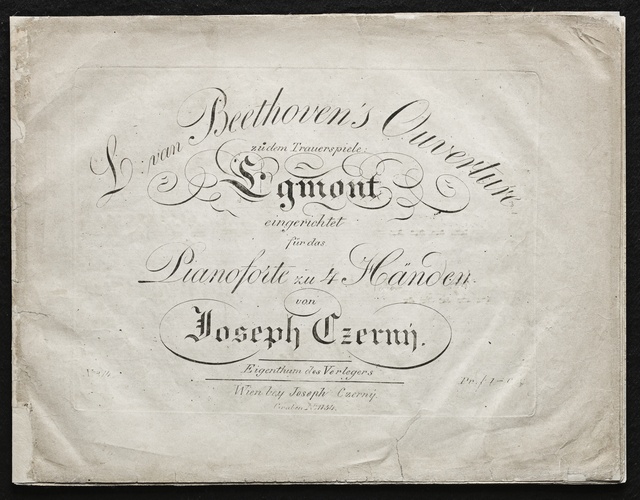 L: van Beethoven's Ouverture
zu dem Trauerspiele:
Egmont
eingerichtet
für das
Pianoforte zu 4 Händen
von
Joseph Czerný.
Eigenthum des Verlegers
Wien bey Joseph Czerný.